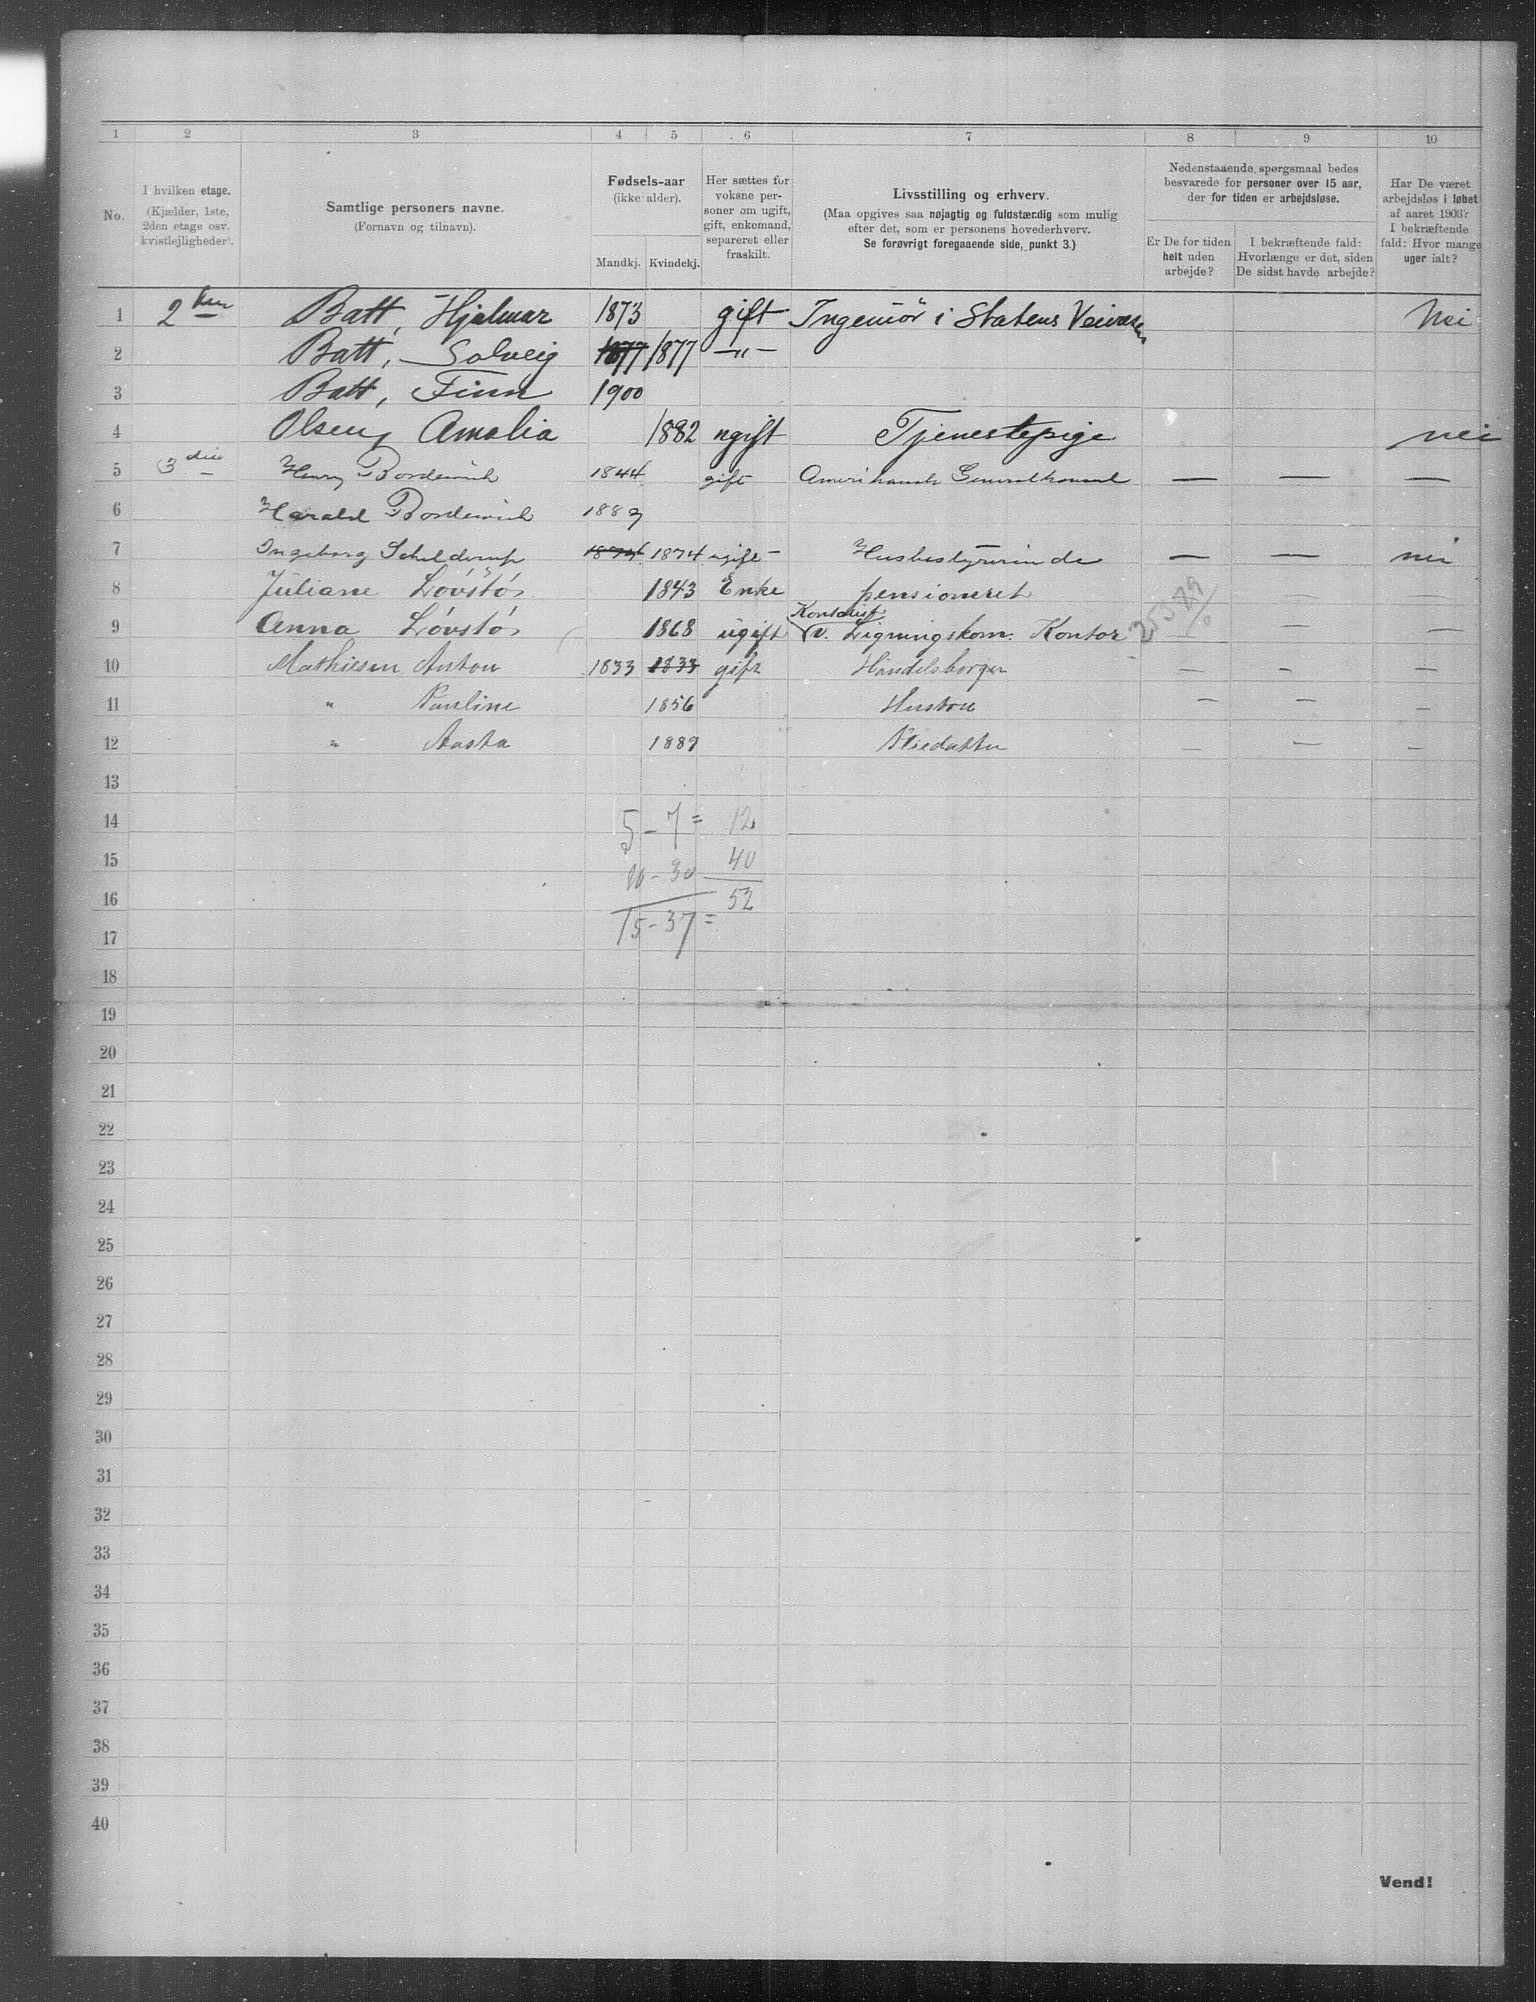 1 2 3 4 5 6 7 8 9 10
No.
I hvilken etage.
(Kjælder, 1ste,
2den etage osv.
kvistlejligheder).
Samtlige personers navne.
(Fornavn og tilnavn).
Fødsels-aar
(ikke alder).
Mandkj. Kvindekj.
Her sættes for
voksne per-
soner om ugift,
gift, enkemand,
separeret eller
fraskilt.
Livsstilling og erhverv.
(Maa opgives saa nøjagtig og fuldstændig som mulig
efter det, som er personens hovederhverv.
Se forøvrigt foregaaende side, punkt 3.)
Nedenstaaende spørgsmaal bedes
besvarede for personer over 15 aar,
der for tiden er arbejdsløse.
Er De for tiden
helt uden
arbejde?
I bekræftende fald:
Hvorlænge er det, siden
De sidst havde arbejde?
Har De været
arbejdsløs i løbet
af aaret 1903?
I bekræftende
fald: Hvor mange
uger ialt?
1 2 Batt, Hjalmar 1873 gift Ingeniör i Statens Veivæsen Nei
2 Batt, Solveig 1877 1877 —"—
3 Batt, Finn 1900
4 Olsen, Amalia 1882 ugift Tjenestepige nei
5 3die Henry Bordewich 1844 gift Amerikansk Generalkonsul — — —
6 Harald Bordewich 1889
7 Ingeborg Schelderup 1874 1874 ugift Husbestyrerinde — — nei
8 Juliane Lövstö 1843 Enke pensioneret — —
9 Anna Lövstö 1868 ugift Kontorist v. Ligningskom. Kontor — — —
10 Mathiesen Anton 1833 1833 gift Handelsborger — - —
11 " Pauline 1856 Hustru — — —
12 " Aasta 1889 Pleiedatter — — —
13
14 5 - 7 = 12
15 10 - 30 40
16 52
17 15 - 37 =
18
19
20
21
22
23
24
25
26
27
28
29
30
31
32
33
34
35
36
37
38
39
40
Vend!